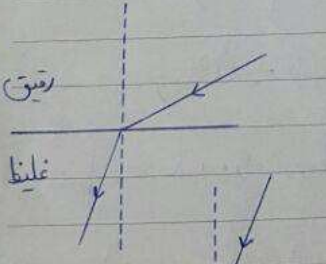 رقیق
غلیظ